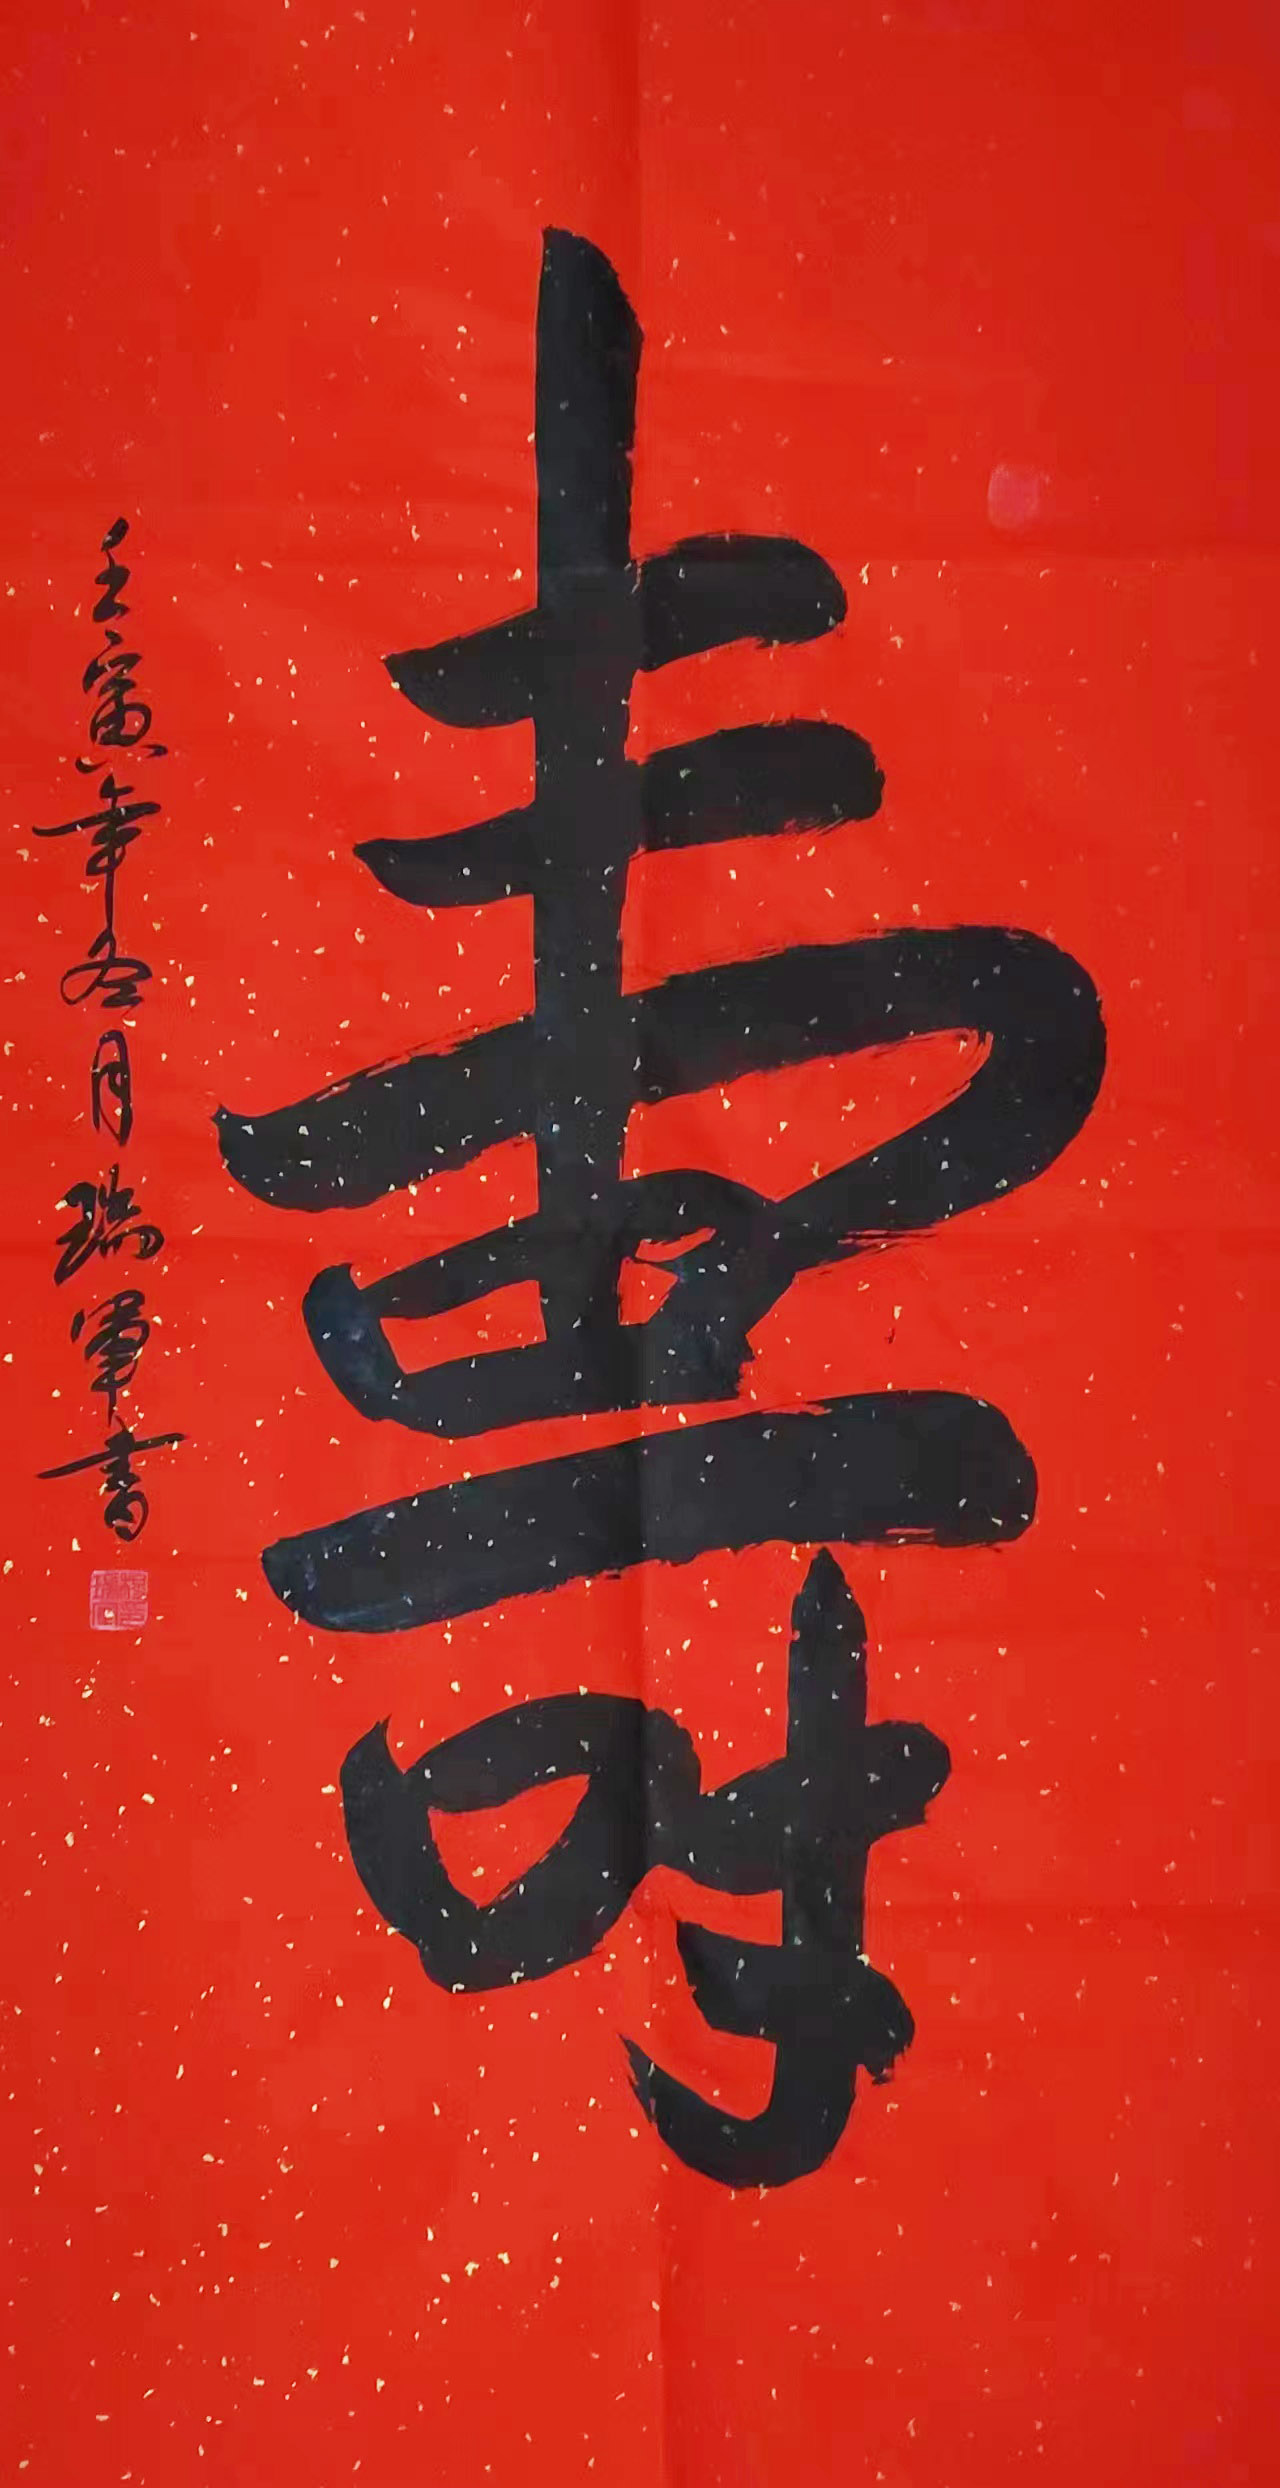 壽
壬寅年冬月瑞軍書